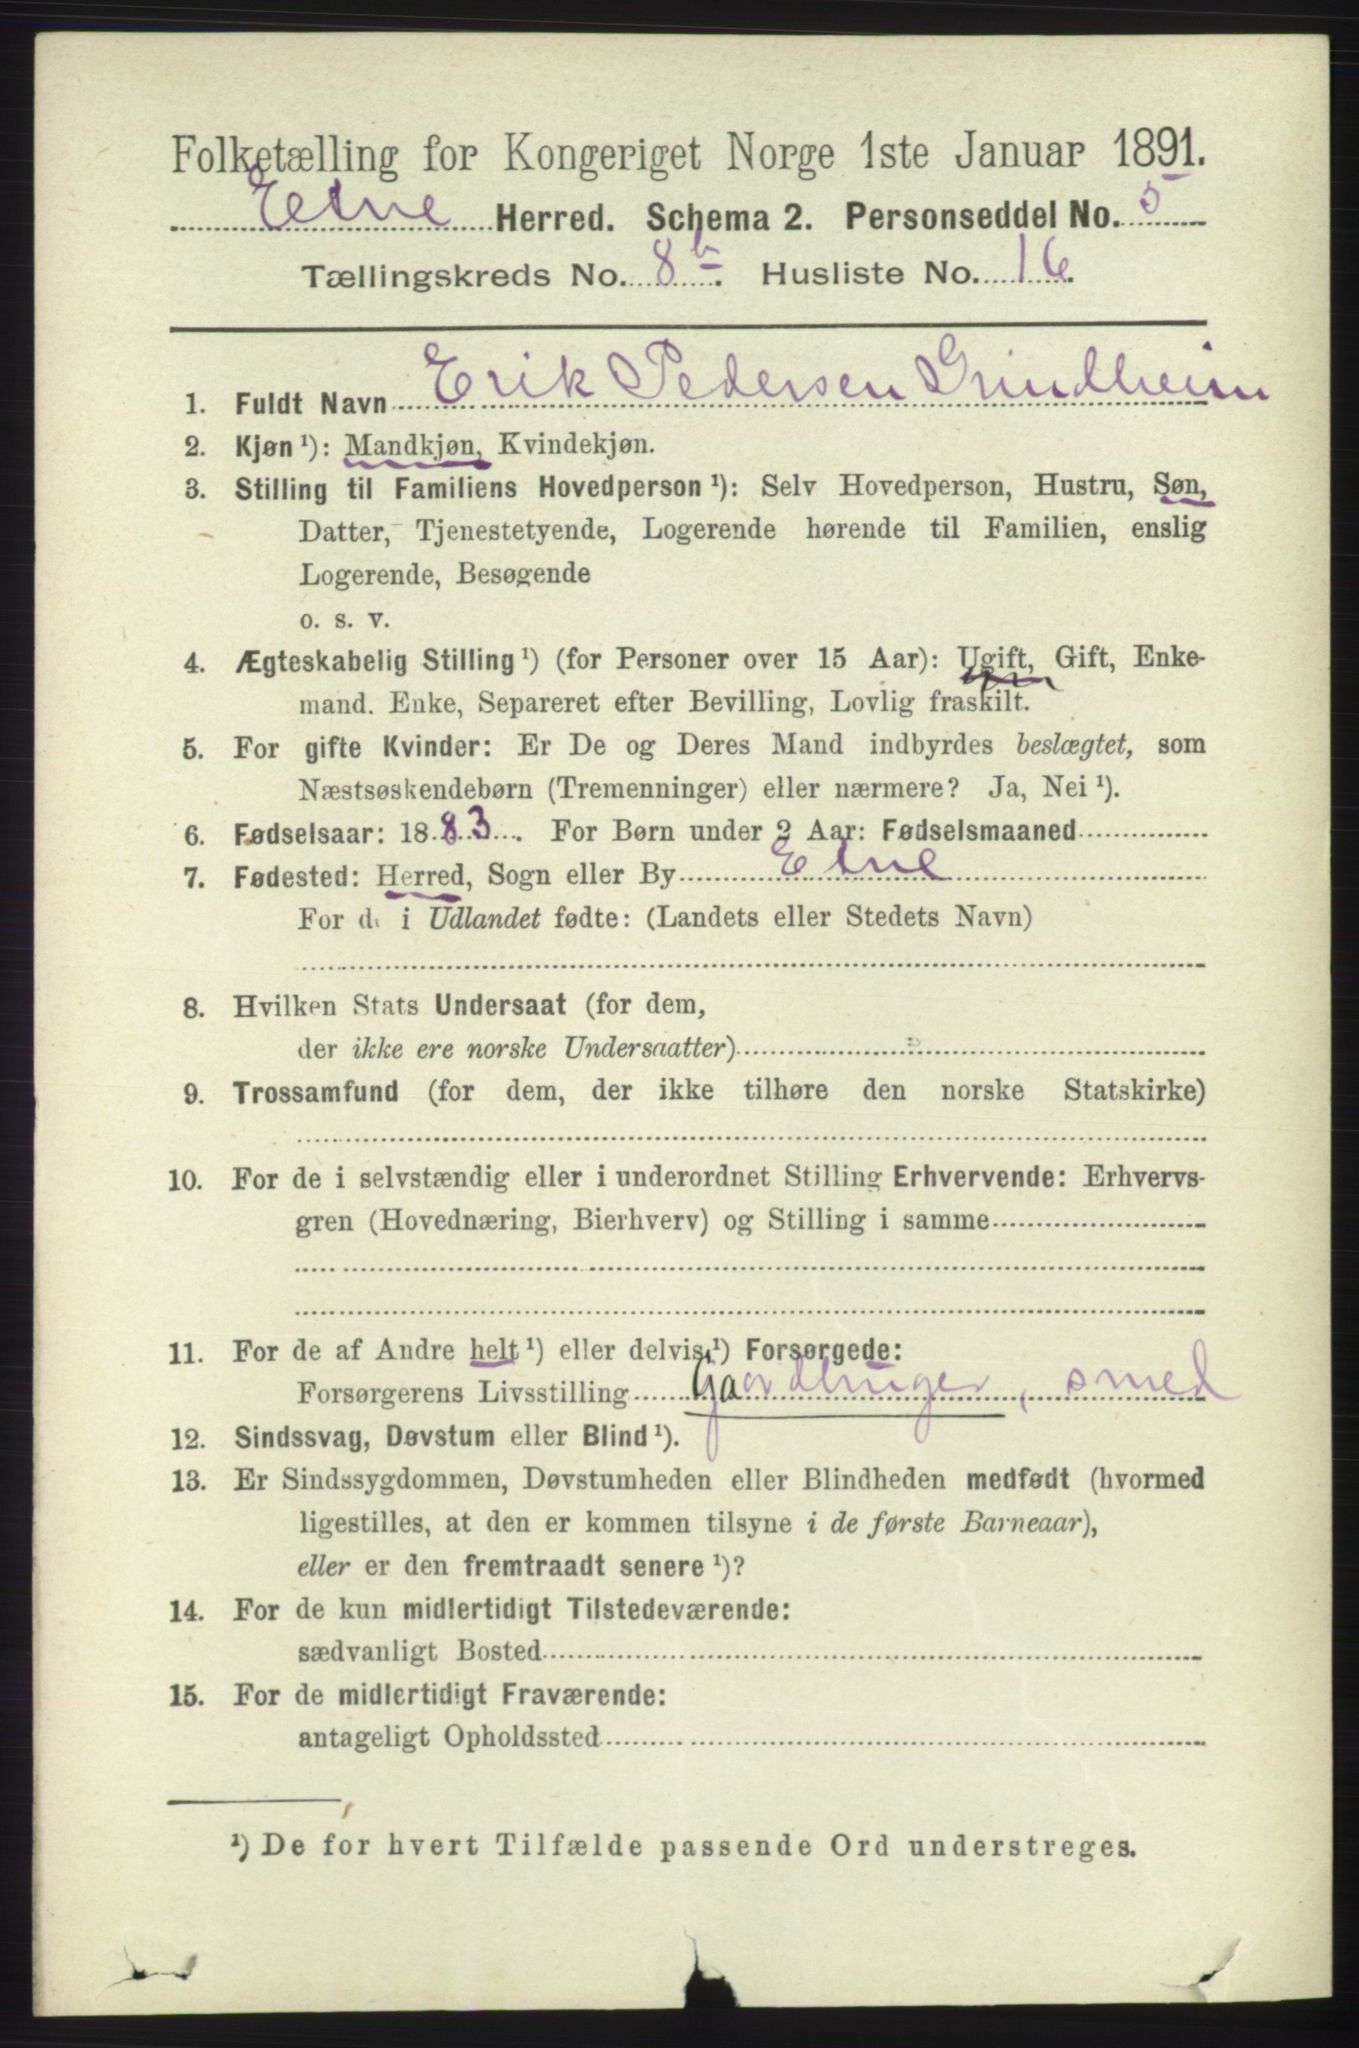 Folketælling for Kongeriget Norge 1ste Januar 1891.
Etne Herred. Schema 2. Personseddel No. 5
Tællingskreds No. 8b. Husliste No. 16.
1. Fuldt Navn Erik Pedersen Grindheim
2. Kjøn ¹): Mandkjøn, Kvindekjøn.
3. Stilling til Familiens Hovedperson ¹): Selv Hovedperson, Hustru, Søn,
Datter, Tjenestetyende, Logerende hørende til Familien, enslig
Logerende, Besøgende
o. s. v.
4. Ægteskabelig Stilling ¹) (for Personer over 15 Aar): Ugift, Gift, Enke-
mand. Enke, Separeret efter Bevilling, Lovlig fraskilt.
5. For gifte Kvinder: Er De og Deres Mand indbyrdes beslægtet, som
Næstsøskendebørn (Tremenninger) eller nærmere? Ja, Nei ¹).
6. Fødselsaar: 1883. For Børn under 2 Aar: Fødselsmaaned
7. Fødested: Herred, Sogn eller By Etne
For d. i Udlandet fødte: (Landets eller Stedets Navn)
8. Hvilken Stats Undersaat (for dem,
der ikke ere norske Undersaatter)
9. Trossamfund (for dem, der ikke tilhøre den norske Statskirke)
10. For de i selvstændig eller i underordnet Stilling Erhvervende: Erhvervs-
gren (Hovednæring, Bierhverv) og Stilling i samme
11. For de af Andre helt ¹) eller delvis ¹) Forsørgede:
Forsørgerens Livsstilling Gaardbruger, smed
12. Sindssvag, Døvstum eller Blind ¹).
13. Er Sindssygdommen, Døvstumheden eller Blindheden medfødt (hvormed
ligestilles, at den er kommen tilsyne i de første Barneaar),
eller er den fremtraadt senere ¹)?
14. For de kun midlertidigt Tilstedeværende:
sædvanligt Bosted
15. For de midlertidigt Fraværende:
antageligt Opholdssted
¹) De for hvert Tilfælde passende Ord understreges.